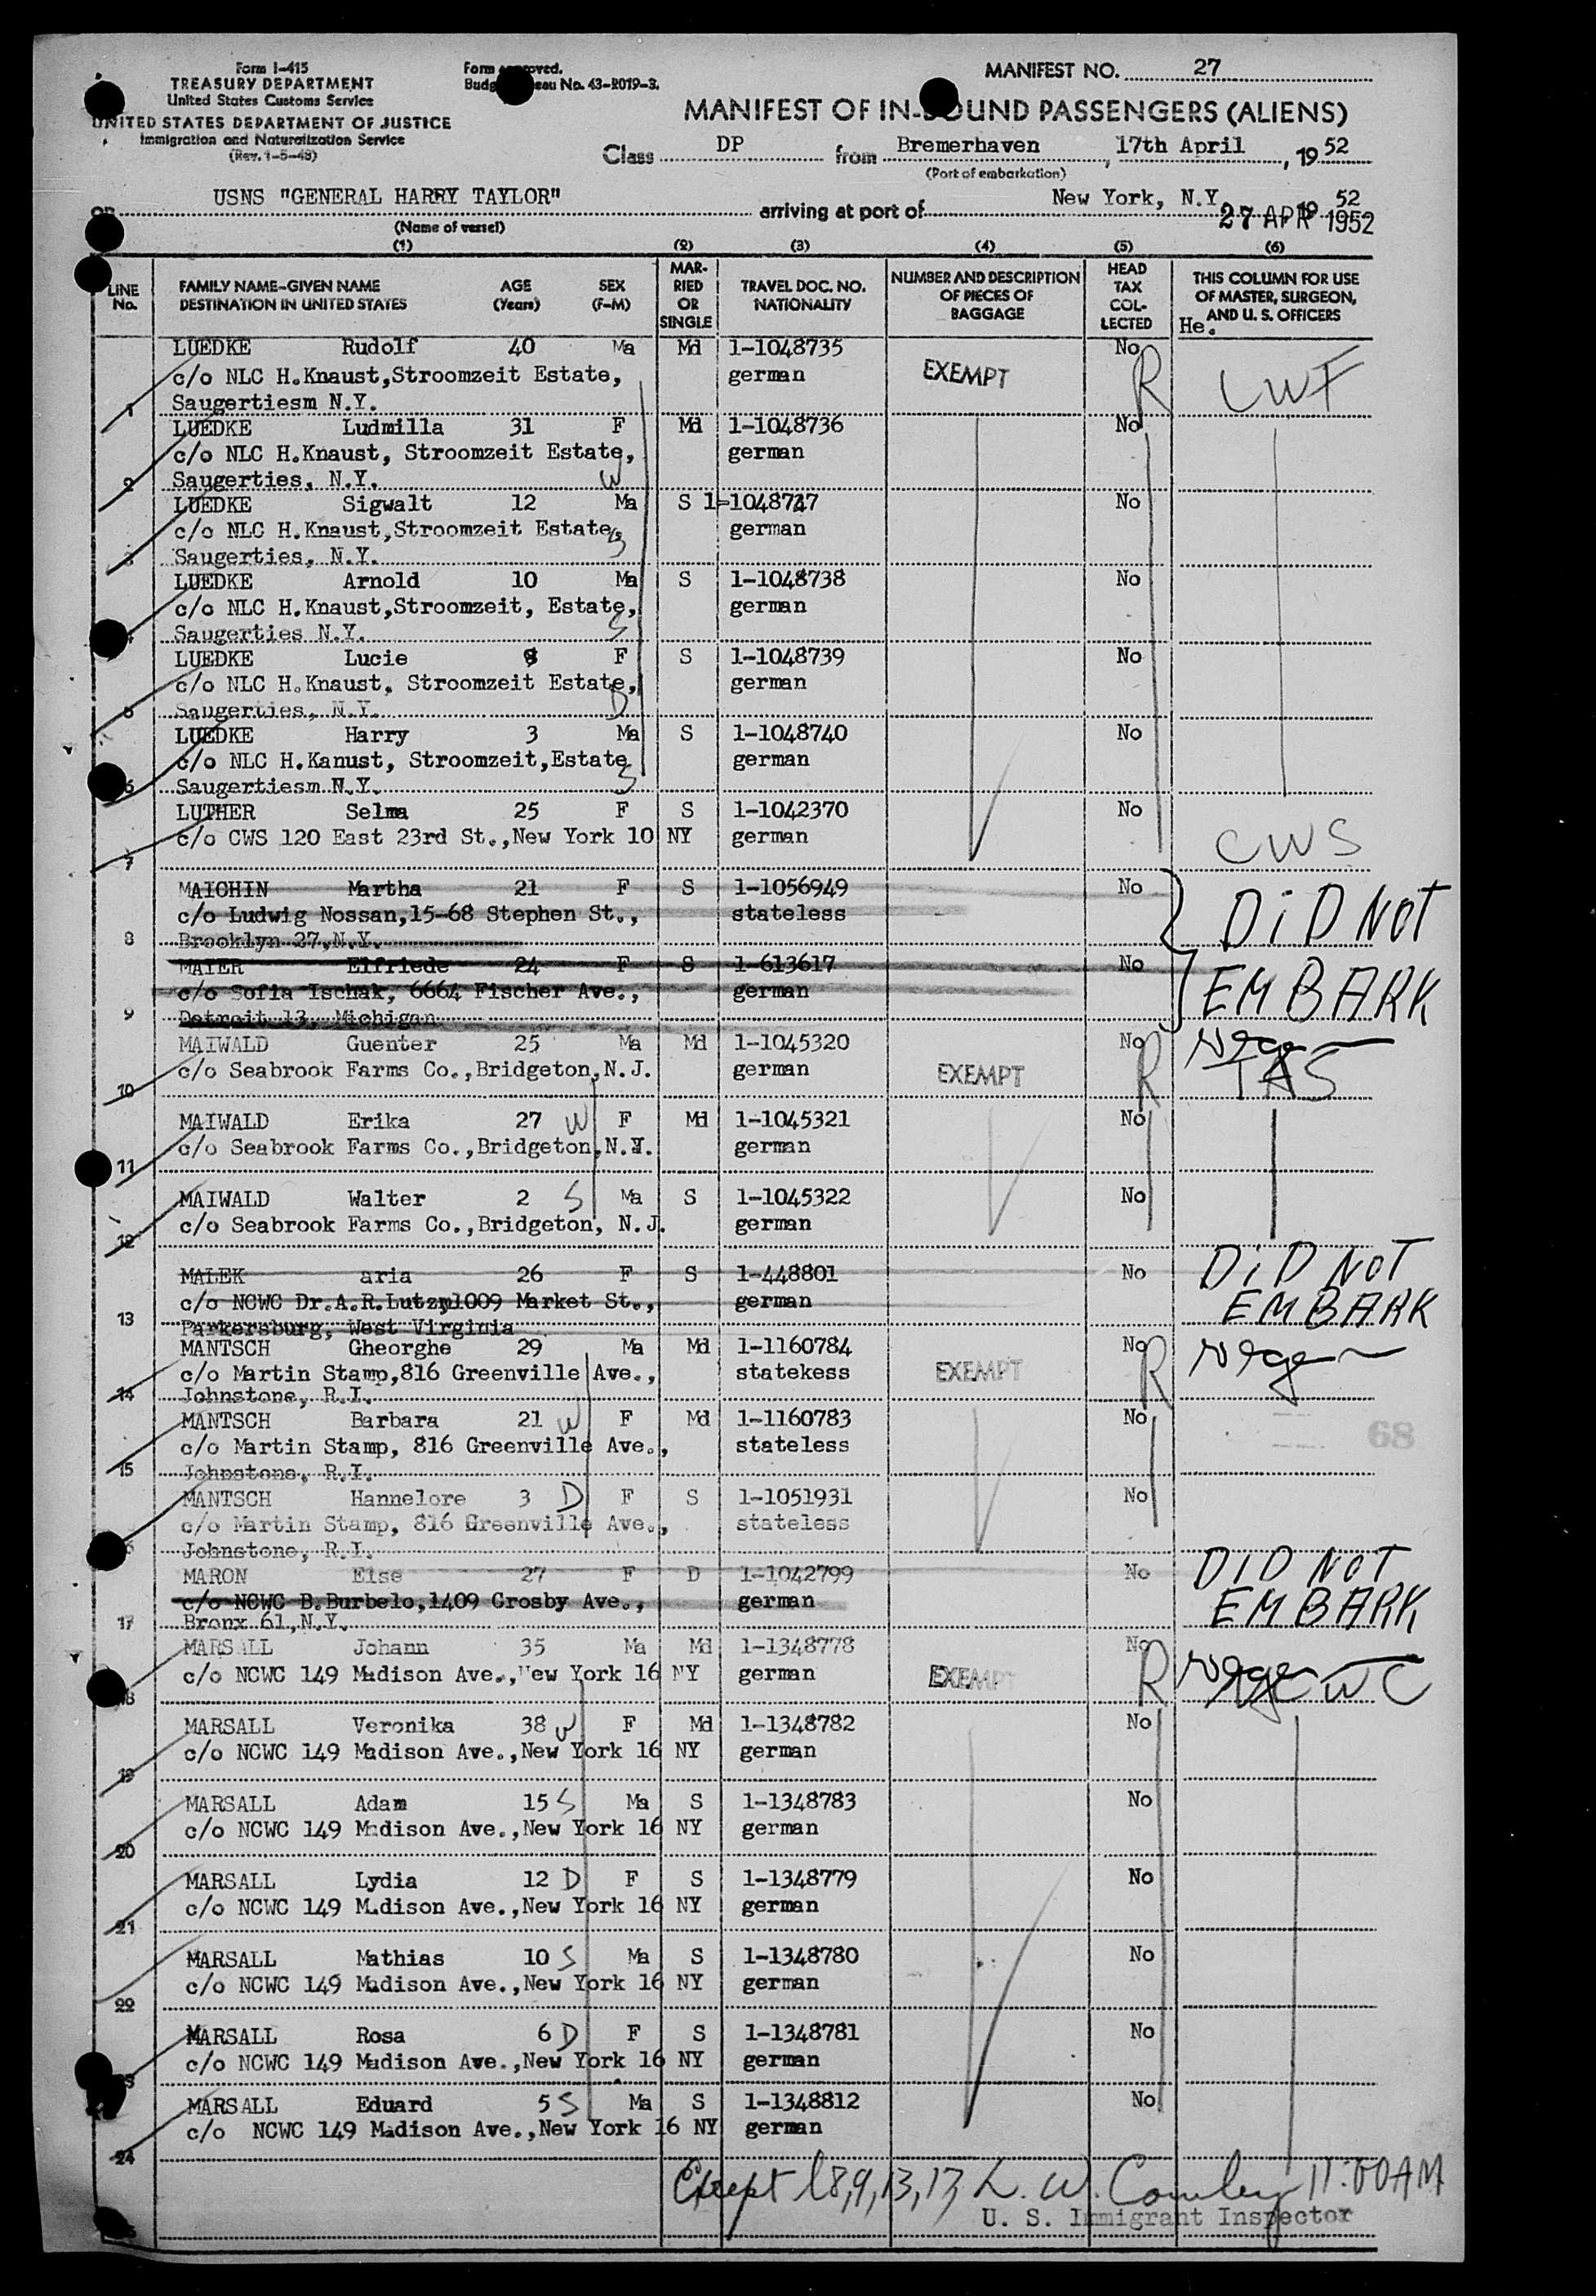 Form I-415
TREASURY DEPARTMENT
United States Customs Service
UNITED STATES DEPARTMENT OF JUSTICE
Immigration and Naturalization Service
(Rev. 1-5-48)
Form approved.
Budget Bureau No. 43-R019-3.
MANIFEST NO. 27
MANIFEST OF IN-BOUND PASSENGERS (ALIENS)
Class DP from Bremerhaven, 17th April, 19 52
(Port of embarkation)
on USNS "GENERAL HARRY TAYLOR" arriving at port of New York, N.Y. 19 52
27 APR 1952
(Name of vessel)
(1) (2) (3) (4) (5) (6)
LINE No.
FAMILY NAME-GIVEN NAME AGE SEX
DESTINATION IN UNITED STATES (Years) (F-M)
MAR-RIED OR SINGLE
TRAVEL DOC. NO. NATIONALITY
NUMBER AND DESCRIPTION OF PIECES OF BAGGAGE
HEAD TAX COL-LECTED
THIS COLUMN FOR USE OF MASTER, SURGEON, AND U. S. OFFICERS
He.
LUEDKE Rudolf 40 Ma Md 1-1048735 No
c/o NLC H.Knaust,Stroomzeit Estate, german EXEMPT R CWF
1 Saugertiesm N.Y.
LUEDKE Ludmilla 31 F Md 1-1048736 No
c/o NLC H.Knaust, Stroomzeit Estate, german
2 Saugerties, N.Y. W
LUEDKE Sigwalt 12 Ma S 1-1048737 No
c/o NLC H.Knaust,Stroomzeit Estate, german
3 Saugerties, N.Y. S
LUEDKE Arnold 10 Ma S 1-1048738 No
c/o NLC H.Knaust,Stroomzeit, Estate, german
4 Saugerties N.Y. S
LUEDKE Lucie 8 F S 1-1048739 No
c/o NLC H.Knaust, Stroomzeit Estate, german
5 Saugerties, N.Y. D
LUEDKE Harry 3 Ma S 1-1048740 No
c/o NLC H.Kanust, Stroomzeit,Estate german
6 Saugertiesm N.Y. S
LUTHER Selma 25 F S 1-1042370 No
c/o CWS 120 East 23rd St.,New York 10 NY german CWS
7
MAICHIN Martha 21 F S 1-1056949 No
c/o Ludwig Nossan,15-68 Stephen St., stateless DiD NOT
8 Brooklyn 27,N.Y.
MAIER Elfriede 24 F S 1-613617 No
c/o Sofia Ischak, 6664 Fischer Ave., german EMBARK
9 Detroit 13, Michigan
MAIWALD Guenter 25 Ma Md 1-1045320 No
c/o Seabrook Farms Co.,Bridgeton,N.J. german EXEMPT R TAS
10
MAIWALD Erika 27 W F Md 1-1045321 No
c/o Seabrook Farms Co.,Bridgeton,N.J. german
11
MAIWALD Walter 2 S Ma S 1-1045322 No
c/o Seabrook Farms Co.,Bridgeton, N.J. german
12
MALEK aria 26 F S 1-448801 No DiD NOT
c/o NCWC Dr.A.R.Lutzy1009 Market St., german EMBARK
13 Parkersburg, West Virginia
MANTSCH Gheorghe 29 Ma Md 1-1160784 No
c/o Martin Stamp,816 Greenville Ave., statekess EXEMPT R
14 Johnstone, R.I.
MANTSCH Barbara 21 W F Md 1-1160783 No
c/o Martin Stamp, 816 Greenville Ave., stateless 68
15 Johnstone, R.I.
MANTSCH Hannelore 3 D F S 1-1051931 No
c/o Martin Stamp, 816 Greenville Ave., stateless
16 Johnstone, R.I.
MARON Else 27 F D 1-1042799 No DID NOT
c/o NCWC B.Burbelo,1409 Crosby Ave., german EMBARK
17 Bronx 61,N.Y.
MARSALL Johann 35 Ma Md 1-1348778 No
c/o NCWC 149 Madison Ave.,New York 16 NY german EXEMPT R
18
MARSALL Veronika 38 W F Md 1-1348782 No
c/o NCWC 149 Madison Ave.,New York 16 NY german
19
MARSALL Adam 15 S Ma S 1-1348783 No
c/o NCWC 149 Madison Ave.,New York 16 NY german
20
MARSALL Lydia 12 D F S 1-1348779 No
c/o NCWC 149 Madison Ave.,New York 16 NY german
21
MARSALL Mathias 10 S Ma S 1-1348780 No
c/o NCWC 149 Madison Ave.,New York 16 NY german
22
MARSALL Rosa 6 D F S 1-1348781 No
c/o NCWC 149 Madison Ave.,New York 16 NY german
23
MARSALL Eduard 5 S Ma S 1-1348812 No
c/o NCWC 149 Madison Ave.,New York 16 NY german
24
Except l8,9,13,17 L. W. 11:00AM
U. S. Immigrant Inspector